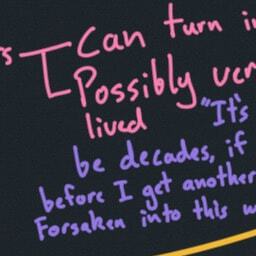 Can turn i
Possibly ver
lived
"It's
be decades, if
before I get another
Forsaken into this w